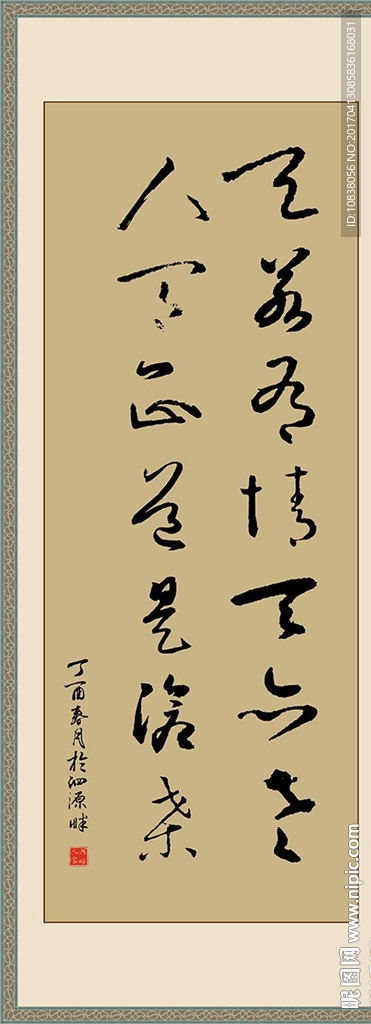 天若有情天亦老
人间正道是沧桑
丁酉春月於泗源畔
ID:10838056 NO:20170413085836168031
昵图网 www.nipic.com